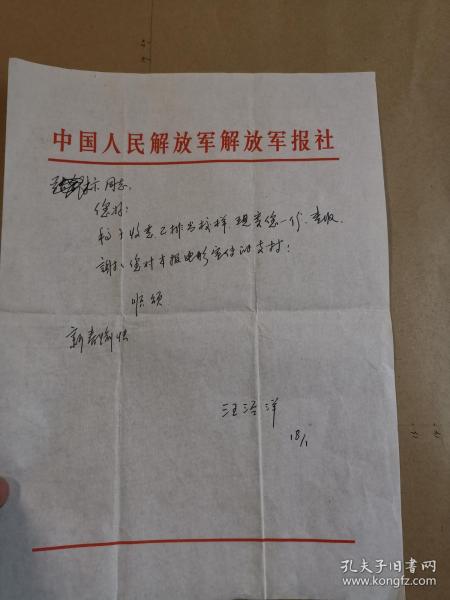 中国人民解放军解放军报社
同志:
您好:
稿子收悉,已排出校样,现寄您一份,查收。
谢谢您对本报电影宣传的支持!
顺颂
新春愉快
汪
18/1
孔夫子旧书网
www.kongfz.com